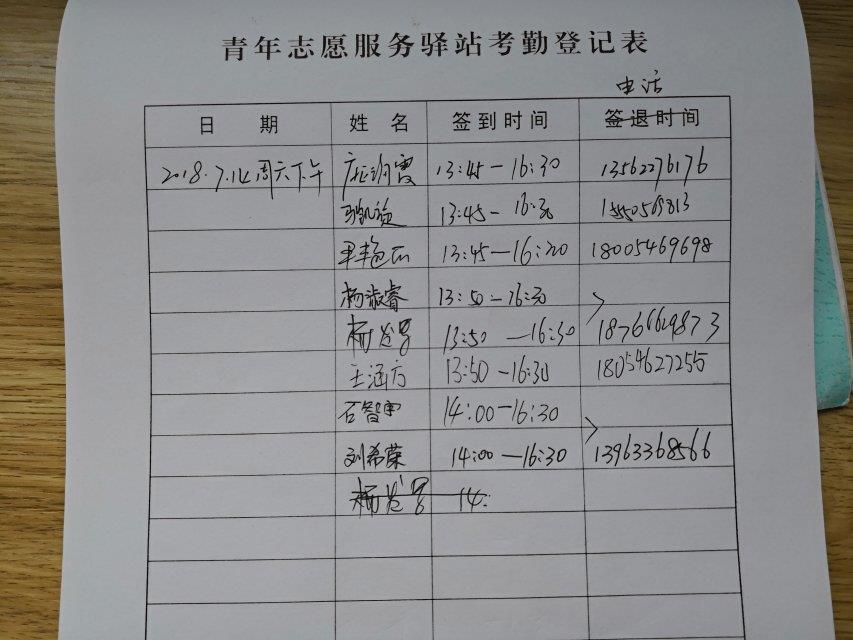 青年志愿服务驿站考勤登记表
电话
日 期 姓 名 签到时间 签退时间
2018.7.14周六下午 13:45-16:30 13562276176
13:45-16:30
13:45-16:20 18005469698
杨淑睿 13:50-16:30
杨 13:50-16:30 18766629873
王涵方 13:50-16:30 18054627255
石智 14:00-16:30
刘希荣 14:00-16:30 13963368566
杨 14: